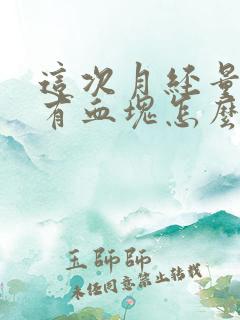 這次月經量
有血塊怎麼
王師師
未经同意禁止转载